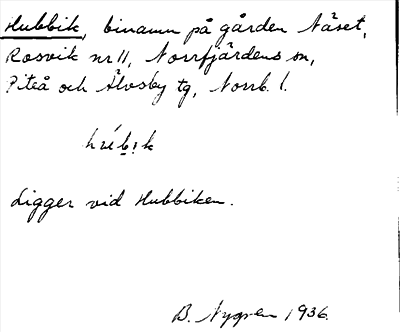 Hubbik, binamn på gården Näset,
Rosvik nr 11, Norrfjärdens sn,
Piteå och Älvsby tg, Norrb. l.
Ligger vid Hubbiken.
B. Nygren 1936.